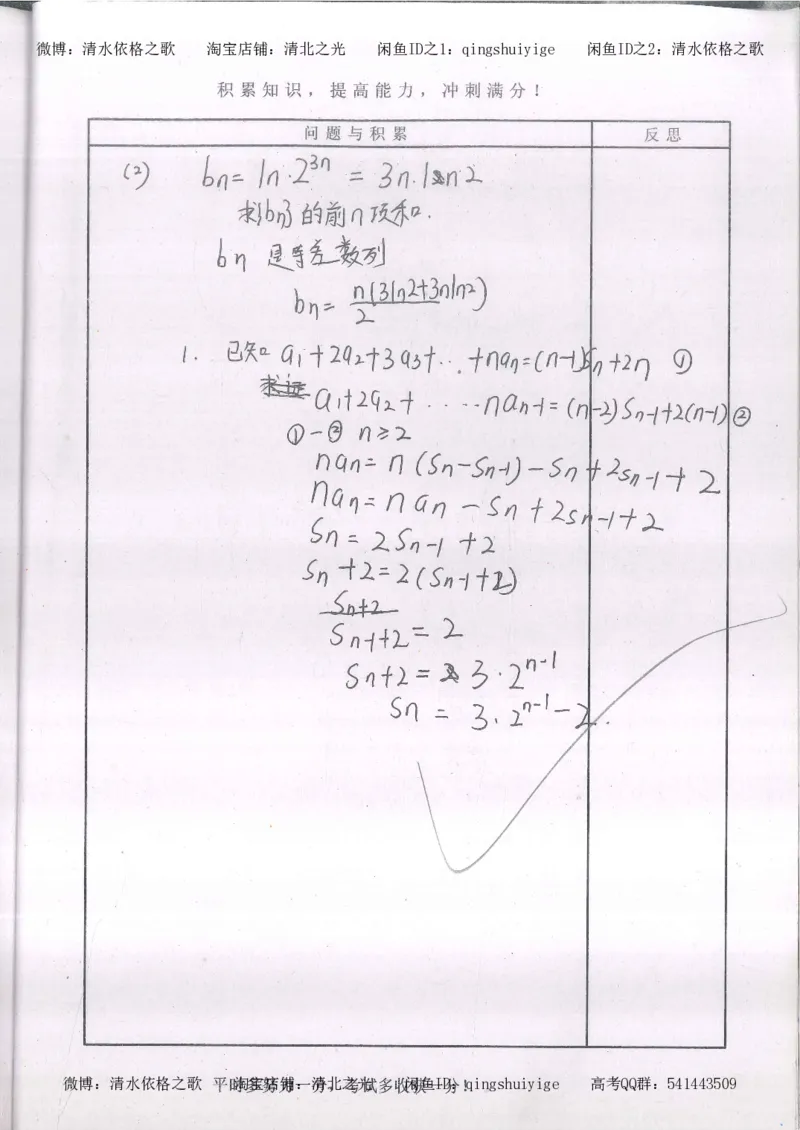 微博：清水依格之歌 淘宝店铺：清北之光 闲鱼ID之1：qingshuiyige 闲鱼ID之2：清水依格之歌
积累知识，提高能力，冲刺满分！
问题与积累 反思
(2) bn = ln·2^{3n} = 3n·ln2
求{bn}的前n项和.
bn 是等差数列
bn = n(3ln2+3nln2)/2
1. 已知 a1+2a2+3a3+…+nan=(n-1)Sn+2n ①
a1+2a2+……nan-1=(n-2)Sn-1+2(n-1) ②
①-② n≥2
nan=n(Sn-Sn-1)-Sn+2Sn-1+2
nan=nan-Sn+2Sn-1+2
Sn=2Sn-1+2
Sn+2=2(Sn-1+2)
Sn+2/Sn-1+2=2
Sn+2=3·2^{n-1}
Sn=3·2^{n-1}-2.
微博：清水依格之歌 淘宝店铺：清北之光 闲鱼ID：qingshuiyige 高考QQ群：541443509